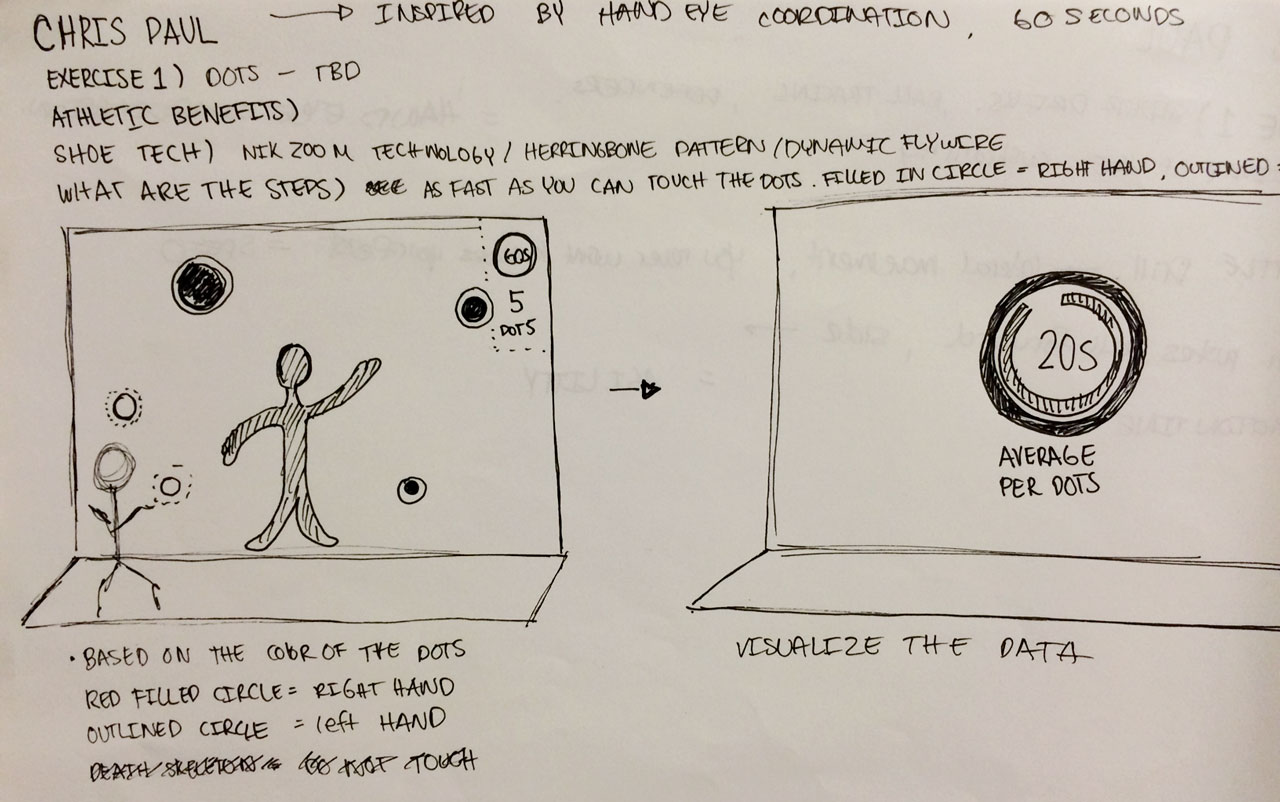 CHRIS PAUL → INSPIRED BY HAND EYE COORDINATION, 60 SECONDS
EXERCISE 1) DOTS - TBD
ATHLETIC BENEFITS)
SHOE TECH) NIK ZOOM TECHNOLOGY / HERRINGBONE PATTERN / DYNAMIC FLYWIRE
WHAT ARE THE STEPS) AS FAST AS YOU CAN TOUCH THE DOTS. FILLED IN CIRCLE = RIGHT HAND, OUTLINED =
60S
5
DOTS
20S
AVERAGE
PER DOTS
• BASED ON THE COLOR OF THE DOTS
RED FILLED CIRCLE = RIGHT HAND
OUTLINED CIRCLE = left HAND
DEATH/SKELETONS = TOUCH
VISUALIZE THE DATA